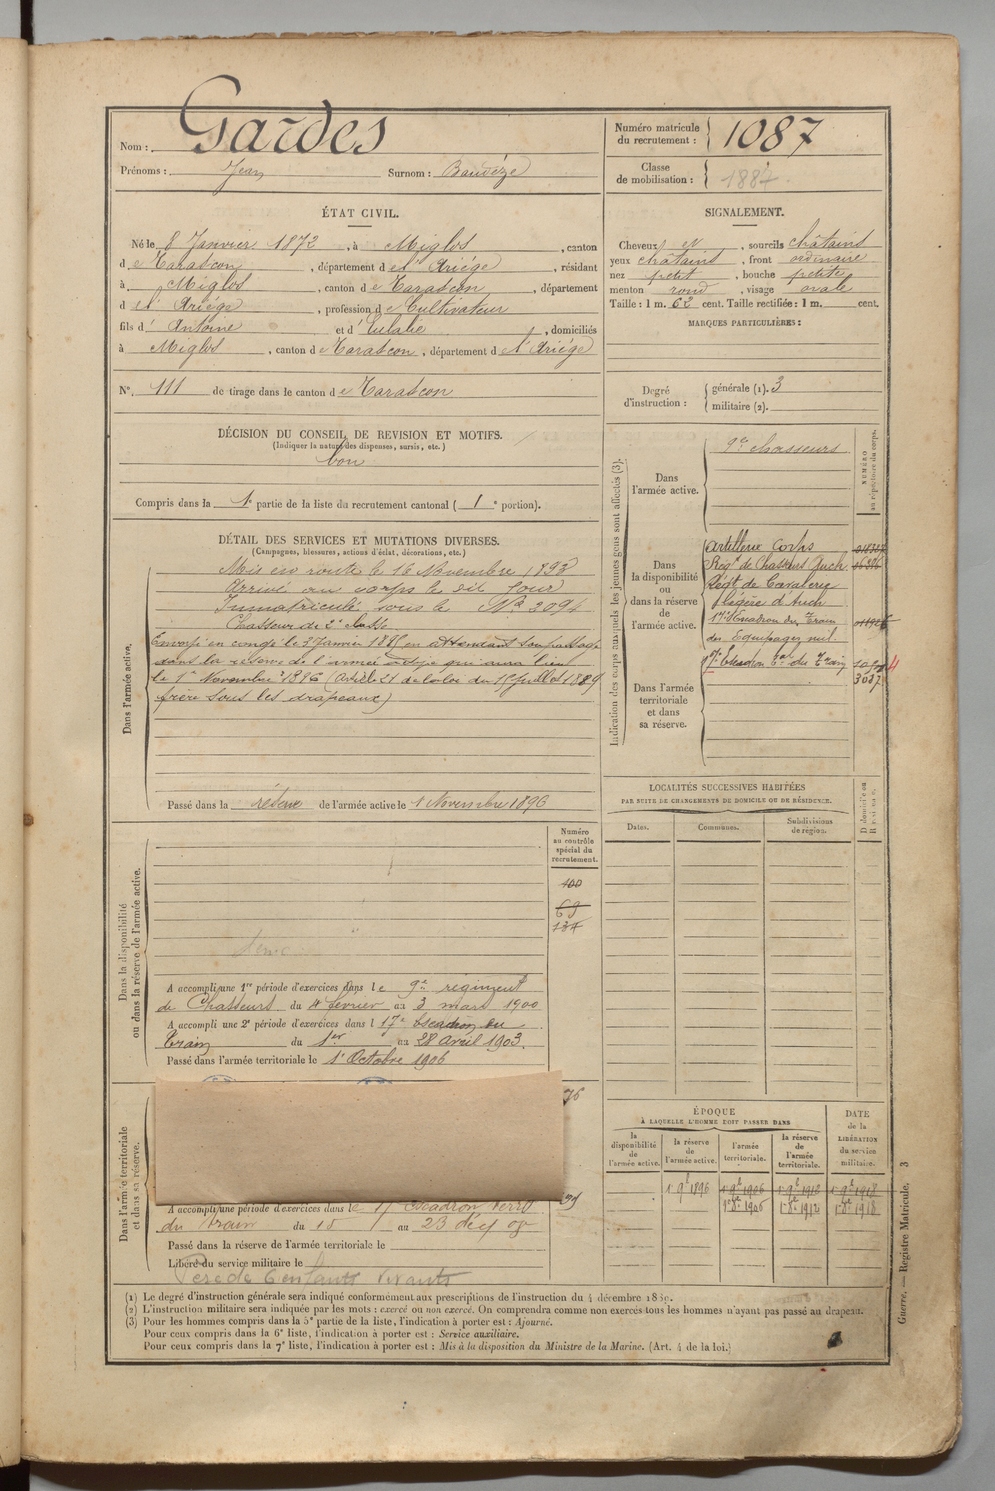 Nom : Gardes
Prénoms : Jean Surnom : Baudèze
ÉTAT CIVIL.
Né le 8 Janvier 1872, à Miglos, canton
de Tarascon, département de l'Ariége, résidant
à Miglos, canton de Tarascon, département
d el' Ariége, profession de Cultivateur
fils d' Antoine et d' Eulalie, domiciliés
à Miglos, canton de Tarascon, département de l'Ariége
N°. 111 de tirage dans le canton de Tarascon
DÉCISION DU CONSEIL DE REVISION ET MOTIFS.
(Indiquer la nature des dispenses, sursis, etc.)
bon
Compris dans la 1e partie de la liste du recrutement cantonal ( 1e portion).
DÉTAIL DES SERVICES ET MUTATIONS DIVERSES.
(Campagnes, blessures, actions d'éclat, décorations, etc.)
Dans l'armée active.
Mis en route le 16 Novembre 1893
Arrivé au corps le dit jour
Immatriculé sous le N° 2094
Chasseur de 2e classe
Envoyé en congé le 3 Janvier en attendant son passage
dans la réserve de l'armée active qui aura lieu
le 1er Novembre 1896 (Article 21 de la loi du 15 Juillet 1889
frère sous les drapeaux)
Passé dans la réserve de l'armée active le 1 Novembre 1896
Dans la disponibilité
ou dans la réserve de l'armée active.
Numéro
au contrôle
spécial du
recrutement.
100
69
137
A accompli une 1re période d'exercices dans le 9e régiment
de Chasseurs du 4 février au 3 mars 1900
A accompli une 2e période d'exercices dans l 17e Escadron du
Train du 1er au 28 avril 1903.
Passé dans l'armée territoriale le 1er Octobre 1906
Dans l'armée territoriale
et dans sa réserve.
A accompli une période d'exercices dans le 17 escadron terr
du Train du 15 au 23
Passé dans la réserve de l'armée territoriale le
Libéré du service militaire le
Père de 6 enfants vivants
Numéro matricule
du recrutement : 1087
Classe
de mobilisation :
SIGNALEMENT.
Cheveux et, sourcils châtains
yeux châtains, front ordinaire
nez petit, bouche petite
menton rond, visage ovale
Taille : 1 m. 62 cent. Taille rectifiée : 1 m. cent.
MARQUES PARTICULIÈRES :
Degré
d'instruction :
générale (1). 3
militaire (2).
Indication des corps auxquels les jeunes gens sont affectés (3).
NUMÉRO
au répertoire du corps.
Dans
l'armée active.
9e chasseurs
Dans
la disponibilité
ou
dans la réserve
de
l'armée active.
Artillerie Corps
Régt de Chasseurs Auch
Régt de Cavalerie
légère d'Auch
17e Escadron du Train
des Equipages mil.
Dans l'armée
territoriale
et dans
sa réserve.
17e Escadron du Train
3037
LOCALITÉS SUCCESSIVES HABITÉES
PAR SUITE DE CHANGEMENTS DE DOMICILE OU DE RÉSIDENCE.
Dates.
Communes.
Subdivisions
de région.
D domicile ou
R
ÉPOQUE
À LAQUELLE L'HOMME DOIT PASSER DANS
la
disponibilité
de
l'armée active.
la réserve
de
l'armée active.
l'armée
territoriale.
la réserve
de
l'armée
territoriale.
DATE
de la
LIBÉRATION
du service
militaire.
1 9bre 1896 1 9bre 1906 1 9bre 1912 1 9bre 1918
1er 8bre 1906 1er 8bre 1912 1er 8bre 1918
(1) Le degré d'instruction générale sera indiqué conformément aux prescriptions de l'instruction du 4 décembre 1889.
(2) L'instruction militaire sera indiquée par les mots : exercé ou non exercé. On comprendra comme non exercés tous les hommes n'ayant pas passé au drapeau.
(3) Pour les hommes compris dans la 5e partie de la liste, l'indication à porter est : Ajourné.
Pour ceux compris dans la 6e liste, l'indication à porter est : Service auxiliaire.
Pour ceux compris dans la 7e liste, l'indication à porter est : Mis à la disposition du Ministre de la Marine. (Art. 4 de la loi.)
Guerre. — Registre Matricule. 3